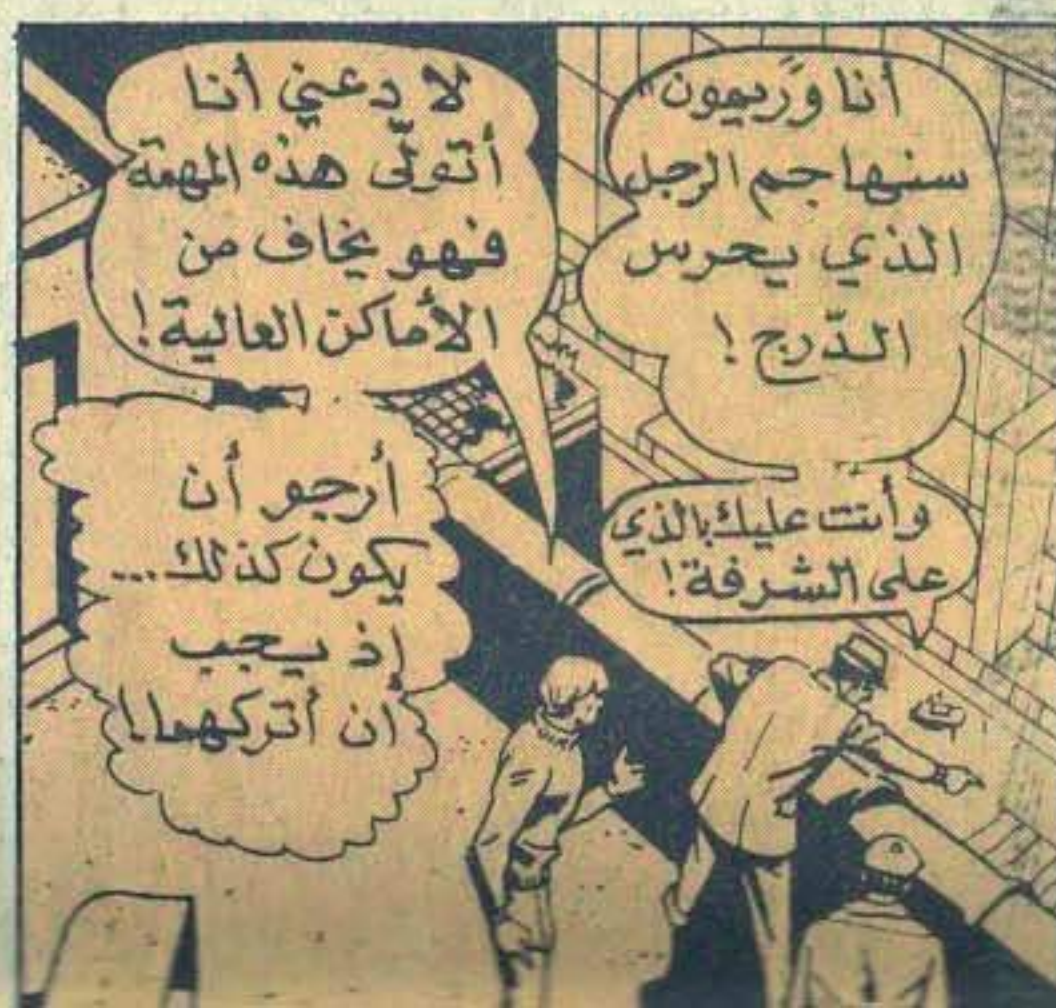 أنا وَريمون"
سنهاجم الرجل
الذي يحرس
الدّرج !
وأنت عليك بالذي
على الشرفة !
لا دعني أنا
أتولّى هذه المهمة
فهو يخاف من
الأماكن العالية !
أرجو أن
يكون كذلك...
إذ يجب
أن أتركهما !